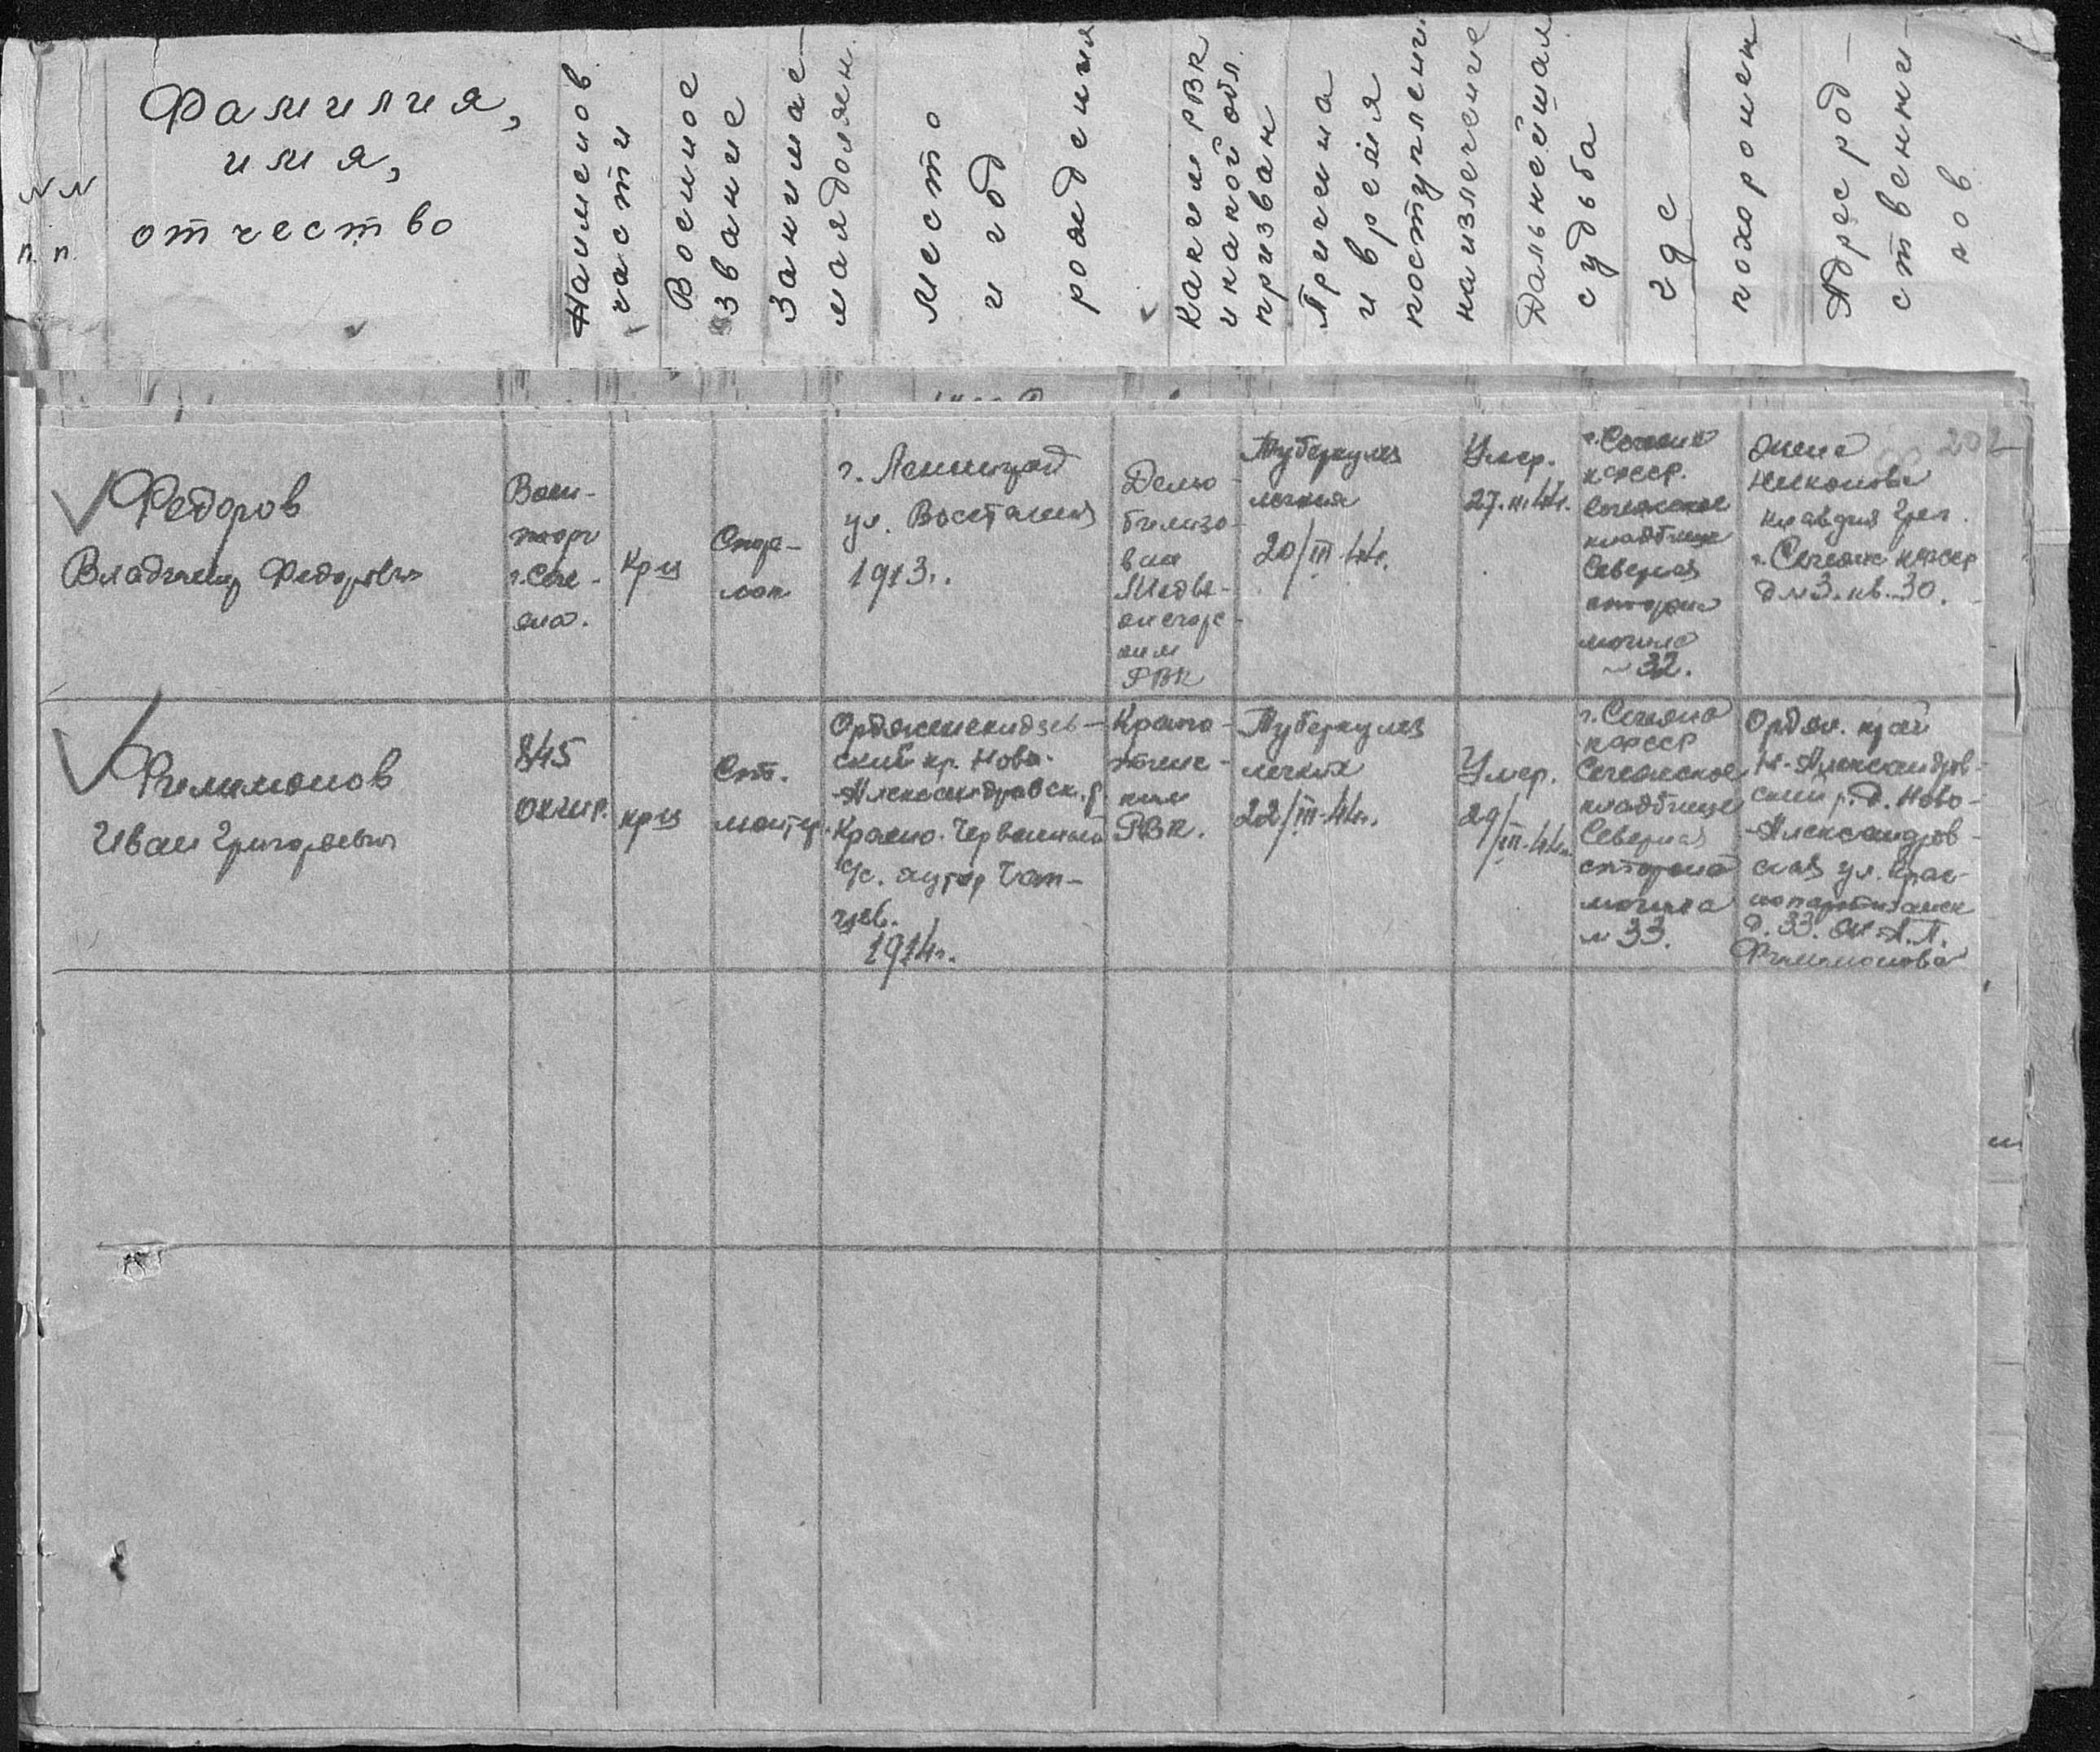 N N
п. п.
Фамилия,
имя,
отчество
Наименов
части
Военное
звание
Занимае-
мая должн.
Место
и год
рождения
Каким РВК
и какой обл.
призван
Причина
и время
поступлени
на излечение
Дальнейшая
судьба
где
похоронен
Адрес род-
ственни-
ков
202
Федоров
Владимир Федорович
Воен-
торг
г. Сеге-
жа.
Кр-ц
г. Ленинград
ул. Восстания
1913г.
Демо-
билизо-
ван
Медве-
жьегорс-
ким
РВК
Туберкулез
легких
20/III-44г.
Умер.
27.III.44г.
г. Сегежа
КФССР.
Сегежское
кладбище
Северная
сторона
могила
№ 32.
Жена
Никонова
Клавдия Григ.
г. Сегежа КФССР
д № 3. кв. 30.
Филимонов
Иван Григорьевич
845
кр-ц
монтер
Орджоникидзев-
ский кр. Ново-
Александровск. р
Красно-Червонный
с/с. хутор
1914г.
Кропо-
ткинс-
ким
РВК.
Туберкулез
легких
22/III-44г.
Умер.
29/III-44г.
г. Сегежа
КФССР
Сегежское
кладбище
Северная
сторона
могила
№ 33.
Ордж. край
Н-Александров-
ский р. д. Ново-
-Александров-
ская ул. Крас-
нопартизанск
д. 33. Ж. А.П.
Филимонова